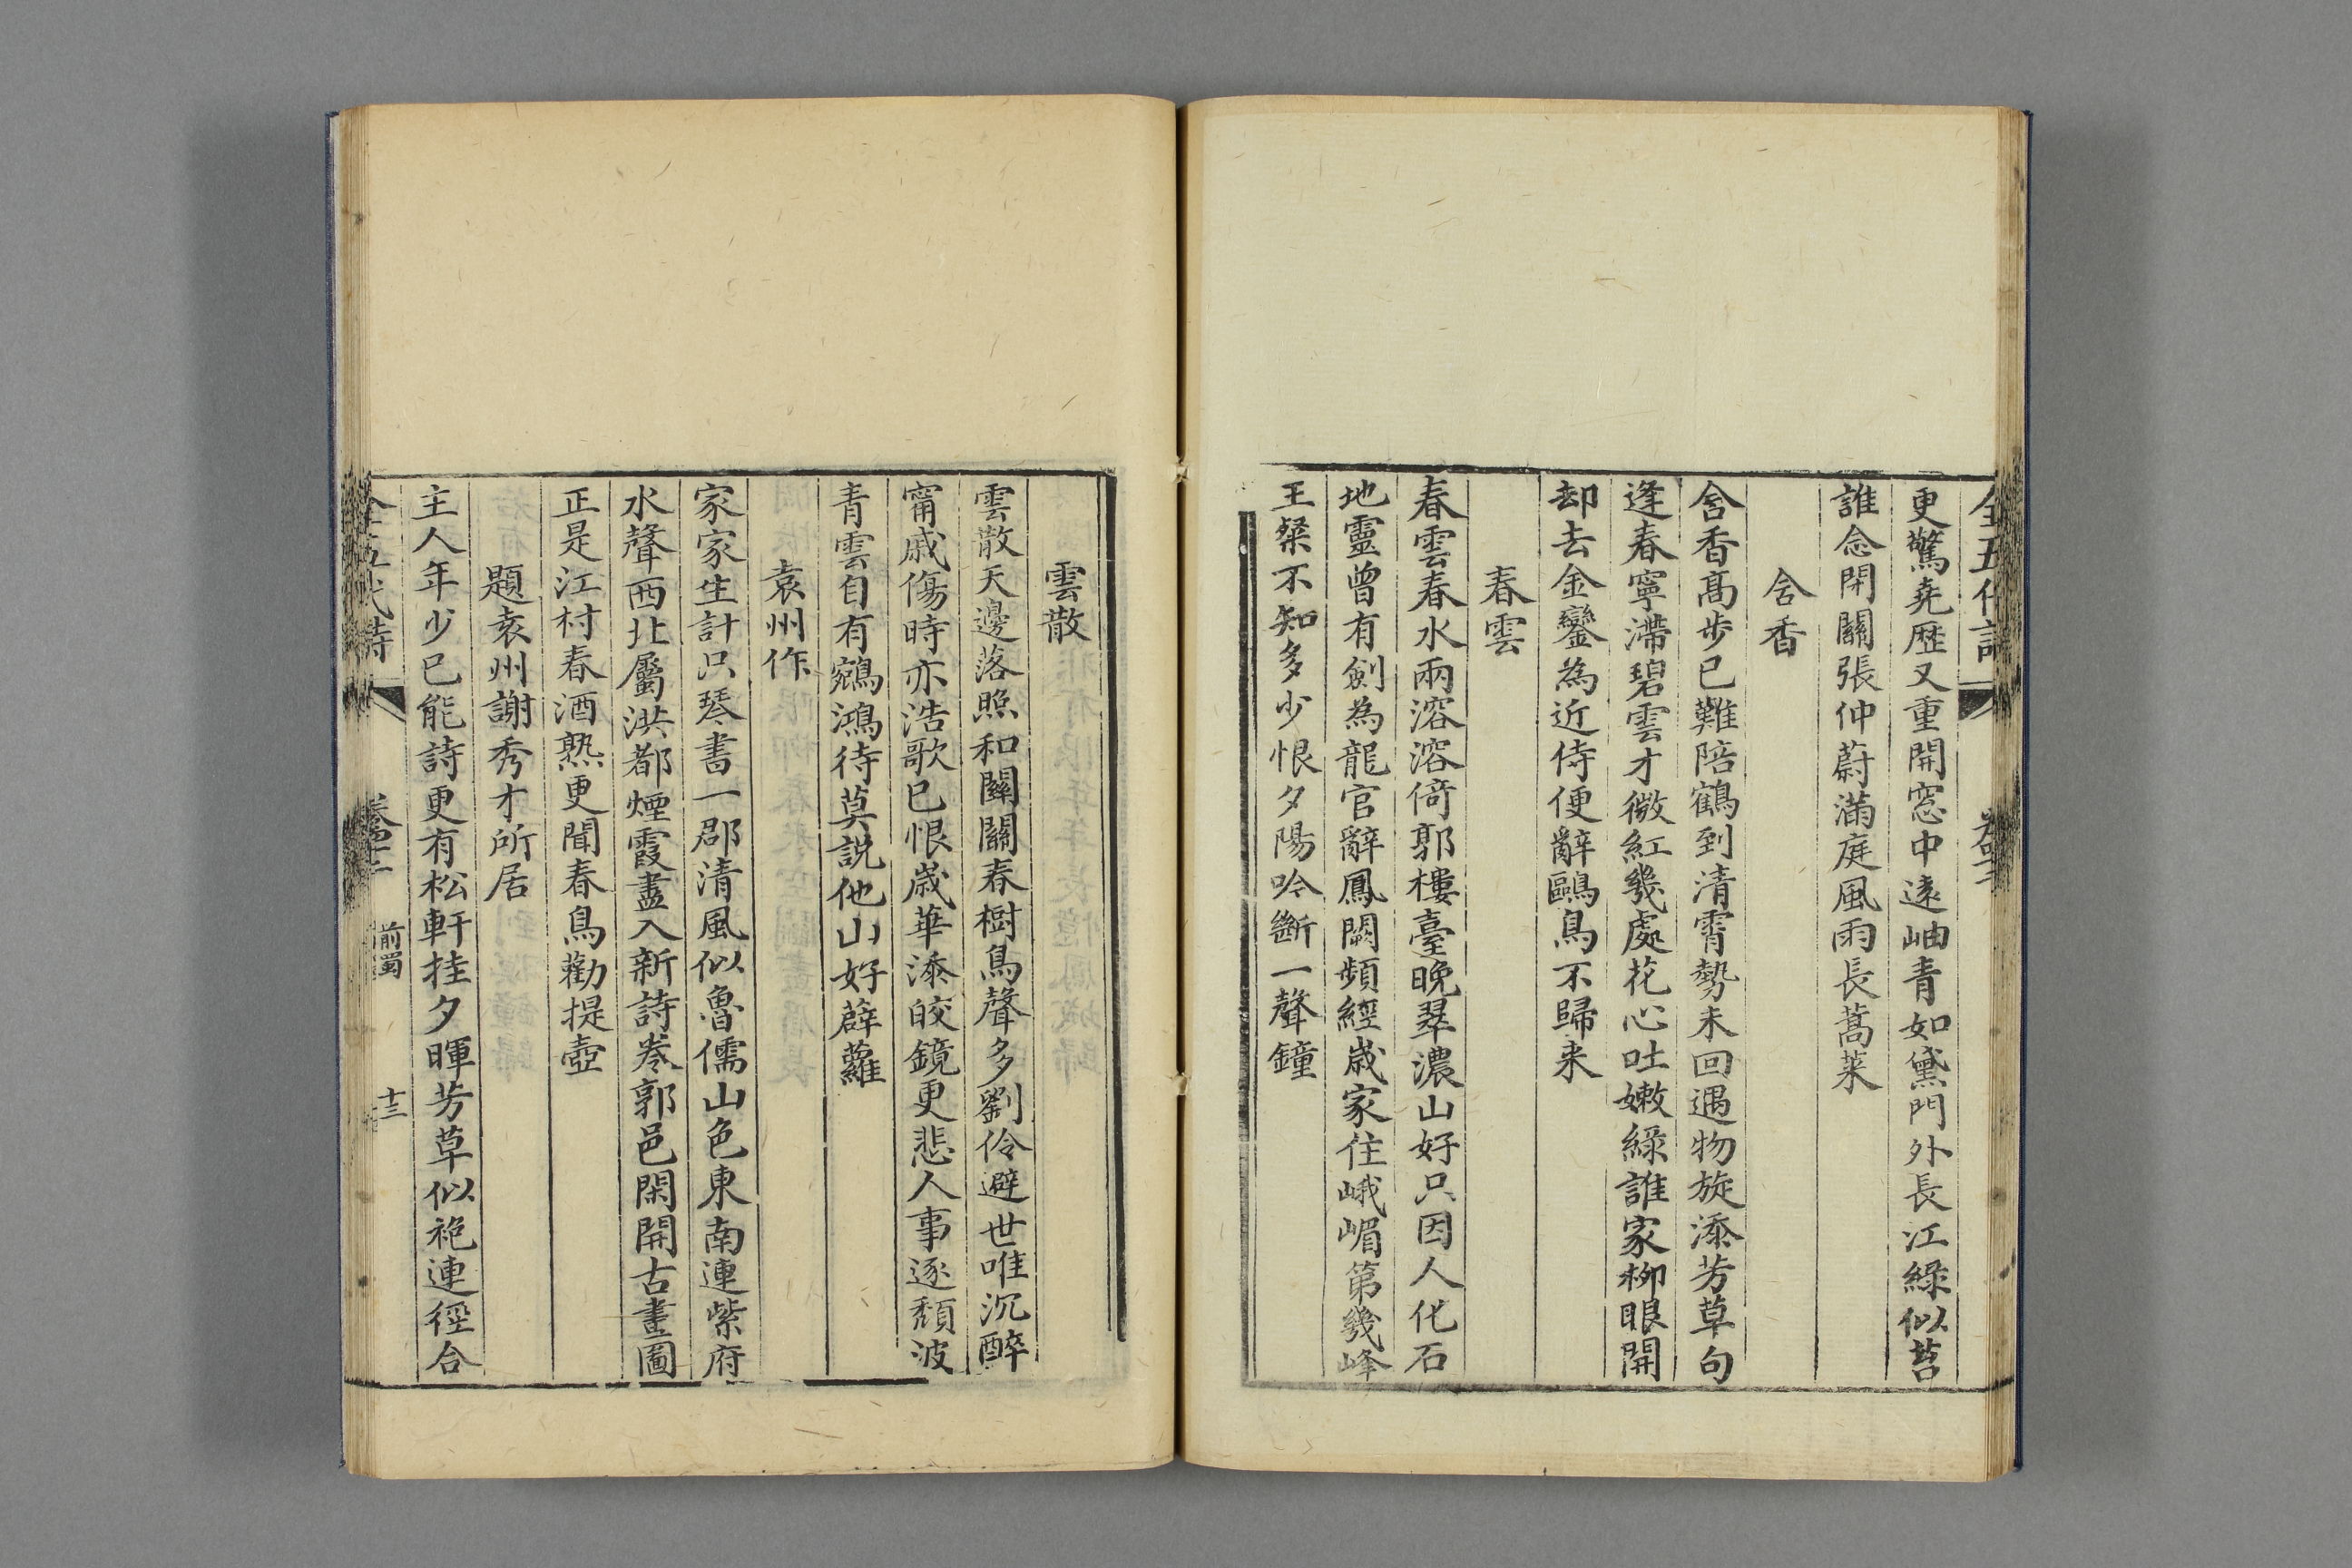 全五代詩
更驚堯歷又重開窓中遠岫青如黛門外長江綠似苔
誰念閉關張仲蔚滿庭風雨長蒿萊
含香
含香高步已難陪鶴到清霄勢未回遇物旋添芳草句
逢春寧滯碧雲才微紅幾處花心吐嫩綠誰家柳眼開
却去金鑾為近侍便辭鷗鳥不歸来
春雲
春雲春水兩溶溶倚郭樓臺晚翠濃山好只因人化石
地靈曾有劍為龍官辭鳳闕頻經歲家住峨嵋第幾峰
王粲不知多少恨夕陽吟斷一聲鐘
雲散
雲散天邊落照和關關春樹鳥聲多劉伶避世唯沉醉
甯戚傷時亦浩歌已恨歲華添皎鏡更悲人事逐頹波
青雲自有鵷鴻待莫說他山好薜蘿
袁州作
家家生計只琴書一郡清風似魯儒山色東南連紫府
水聲西北屬洪都煙霞盡入新詩卷郭邑閑開古畫圖
正是江村春酒熟更聞春鳥勸提壺
題袁州謝秀才所居
主人年少已能詩更有松軒挂夕暉芳草似袍連徑合
全五代詩 前蜀 十三